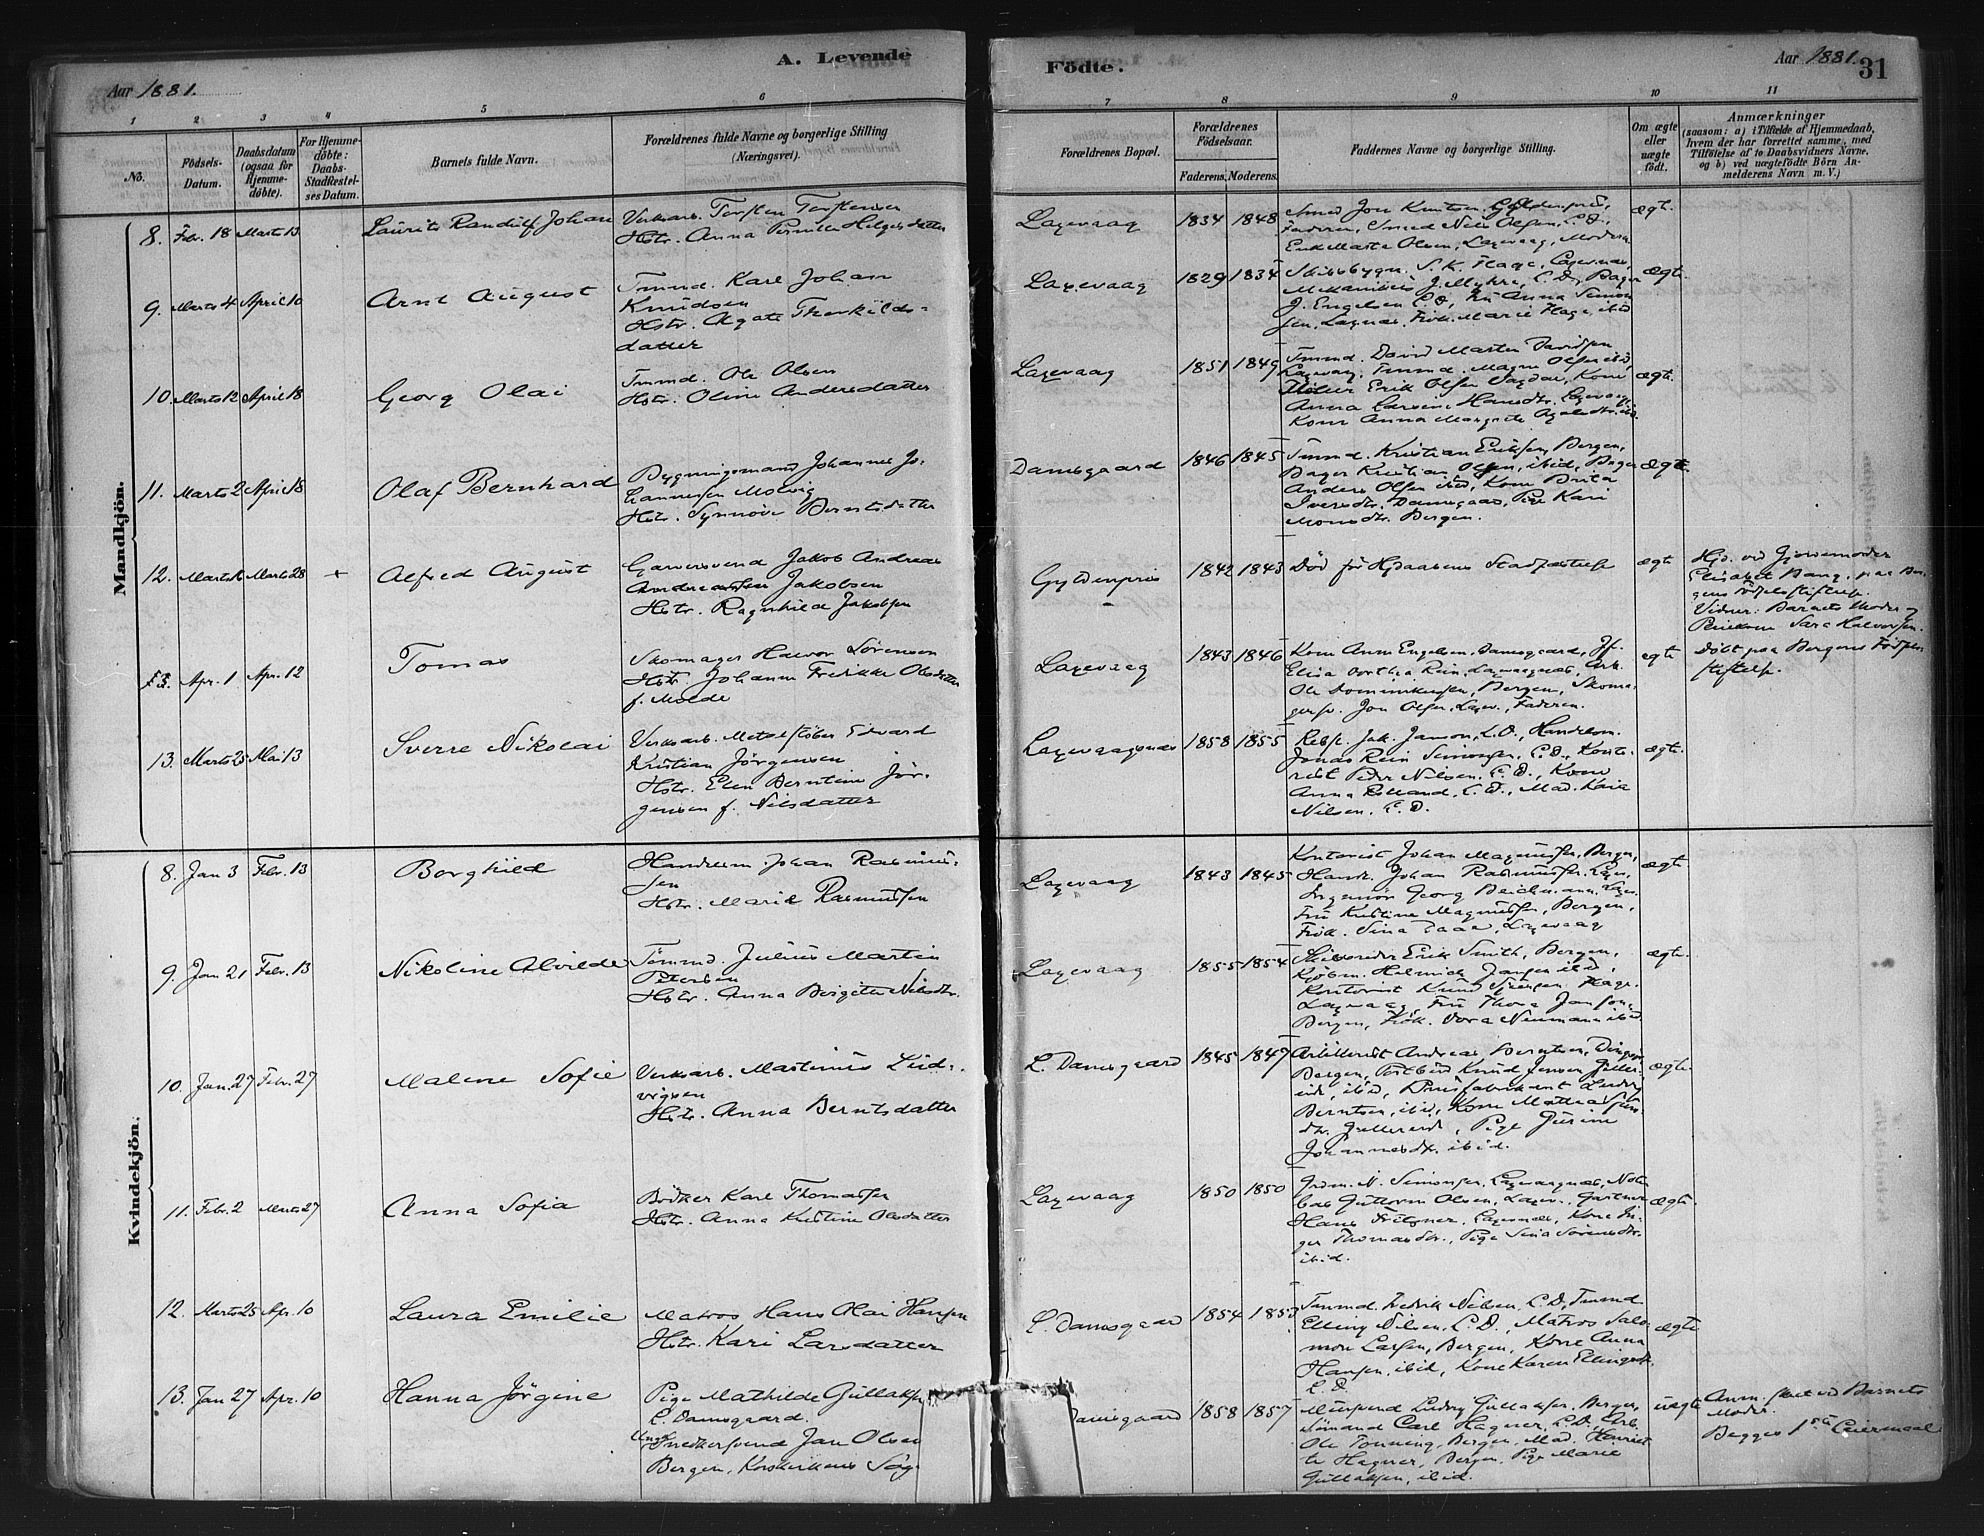 A. Levende
Födte.
Aar 1881.
Aar 1881.
31
1 2 3 4 5 6 7 8 9 10 11
No.
Födsels-Datum.
Daabsdatum (ogsaa for Hjemme-döbte).
For Hjemme-döbte: Daabs-Stadfæstel-ses Datum.
Barnets fulde Navn.
Forældrenes fulde Navne og borgerlige Stilling (Næringsvei).
Forældrenes Bopæl.
Forældrenes Födselsaar.
Faderens. Moderens.
Faddernes Navne og borgerlige Stilling.
Om ægte eller uægte födt.
Anmærkninger
(saasom: a) i Tilfælde af Hjemmedaab,
hvem der har forrettet samme, med
Tilföielse af to Daabsvidners Navne,
og b) ved uægtefödte Börn An-
melderens Navn m. V.)
Mandkjön.
8. Febr. 18 Marts 13 Laurits Randulf Johan
Verksarb. Torsten Torstensen
Hstr. Anna Pernille Helgesdatter
Laxevaag 1834 1848
Smed Jon Knutsen, Gyldenpris,
Faderen, Smed Nils Olsen, L. D.,
Enke Marta Olsen, Laxevaag, Moderen
ægt.
9. Marts 4 April 10 Arne August
Tmmd. Karl Johan
Knudsen
Hstr. Agate Therkilds-
datter
Laxevaag 1829 1834
Skibsbygm. S. K. Hage, Laxevaag,
Mekanikus J. Myhre, L. D., Bager
J. Engelsen L. D., Fru Anna Simon
sen, Laxnæs, Frøk. Marie Hage, ibid
ægte.
10. Marts 12 April 18 Georg Olai
Tmmd. Ole Olsen
Hstr. Oline Andersdatter
Laxevaag 1851 1849
Tmmd. David Marten Davidsen
Laxevaag, Tmmd. Magne Olsen ibid,
Møller Erik Olsen Sagdal, Kone
Anna Larsine Hansdtr. Laxevaag,
Kone Anna Margrete
ægte.
11. Marts 2 April 18 Olaf Bernhard
Bygningsmand Johannes Jo-
hannesen Molvig
Hstr. Synnöve Berntsdatter
Damsgaard 1846 1845
Tmmd. Kristian Eriksen, Bergen,
Bager Kristian Olsen, ibid, Bager
Anders Olsen ibid, Kone Brita
Iversdtr. Damsgaard, Pige Kari
Monsdtr. Bergen.
ægte.
12. Marts 16 Marts 28 + Alfred August
Garversvend Jakob Andreas
Andreassen Jakobsen
Hstr. Ragnhild Jakobsen
Gyldenpris 1842 1843
Död för Hjdaabens Stadfæstelse
ægte
Hjd. ved Gjordemoder
Elisabet Bang, paa Ber-
gens Födselsstiftelse.
Vidner: Barnets Moder og
Pleiekone Sara Halvorsen.
13. Apr. 1 Apr. 12 Tomas
Skomager Halvor Sörensen
Hstr. Johanne Fredrikke Olsdatter
f. Molde
Laxevaag 1843 1846
Kone Anne Engelsen, Damsgaard, Jfr.
Elisa Dorthea Rein, Laxevaagnæs, Arb.
Ole Dominikusen, Bergen, Skoma-
gersv. Jon Olsen, Laxev., Faderen.
ægte
Döbt paa Bergens Födsels
stiftelse.
13. Marts 25 Mai 13 Sverre Nikolai
Verksarb. Metalstöber Edvard
Kristian Jörgensen
Hstr. Elen Berntine Jör-
gensen f. Nilsdatter
Laxevaagsnæs 1858 1855
Rebsl. Jak. Janson, L. D., Handelsm.
Jonas Rein Simonsen, L. D., Konto-
rist Peder Nilsen, L. D., Kone
Anna Rolland, L. D., Mad. Kaia
Nilsen, L. D.
ægte.
Kvindekjön.
8. Jan 3 Febr. 13 Borghild
Handelsm. Johan Rasmus-
sen
Hstr. Marie Rasmussen
Laxevaag 1843 1845
Kontorist Johan Magnussen, Bergen,
Handl. Johan Rasmussen, Laxev.,
Ingeniör Georg Beichmann, Laxev.
Fru Kristine Magnussen, Bergen,
Frøk. Sina Faae, Laxevaag
ægte
9. Jan. 21 Febr. 13 Nikoline Alvilde
Tömmd. Julius Martin
Petersen
Hstr. Anna Birgitte Nilsdtr.
Laxevaag 1855 1854
Skibsreder Erik Smith, Bergen,
Kjöbm. Helmich Jansen ibid,
Kontorist Knud Hage,
Laxevaag, Fru Thora Janson,
Bergen, Frøk. Dora Neumann ibid
ægte.
10. Jan. 27 Febr. 27 Malene Sofie
Verksarb. Martinus Lud-
vigsen
Hstr. Anna Berntsdatter
L. Damsgaard 1845 1847
Artillerist Andreas Berntsen,
Bergen, Postbud Knud Jensen Gulle-
rud, ibid, Brusfabrikant Ludvig
Berntsen, ibid, Kone Mathea
dtr. Gullerud, Pige Gurine
Johannesdtr. ibid.
ægte.
11. Febr. 2 Marts 27 Anna Sofia
Bödker Karl Thomassen
Hstr. Anna Kristine Olsdatter
Laxevaag 1850 1850
N. Simonsen, Laxevaagnæs,
Guttorm Olsen, Laxev., Gartner
Hans Fritzner, Laxevaag, Kone In-
ger Thomasdtr., Pige Sina Sörensdtr.
ibid.
ægte.
12. Marts 25 Apr. 10 Laura Emilie
Matros Hans Olai Hansen
Hstr. Kari Larsdatter
L. Damsgaard 1854 1853
Tmmd. Fredrik Nilsen, L. D., Tmmd
Elling Nilsen, L. D., Matros Salo-
mon Larsen, Bergen, Kone Anna
Hansen, ibid, Kone Karen Ellingsdtr.
L. D.
ægte
13. Jan 27 Apr. 10 Hanna Jörgine
Pige Mathilde Gullaksen
L. Damsgaard.
Ungk. Snedkersvend Jan Olsen
Bergen, Korskirkens Sog
Damsgaard 1858 1857
Mursvend Ludvig Gullaksen, Bergen,
Sömand Carl Hagner, L. D., Arb.
Ole Tonning, Bergen, Mad. Henriet-
te Hagner, Bergen, Pige Marie
Gullaksen, ibid.
uægte
Anm. skeet ved Barnets
Moder.
Begges 1ste Leiermaal